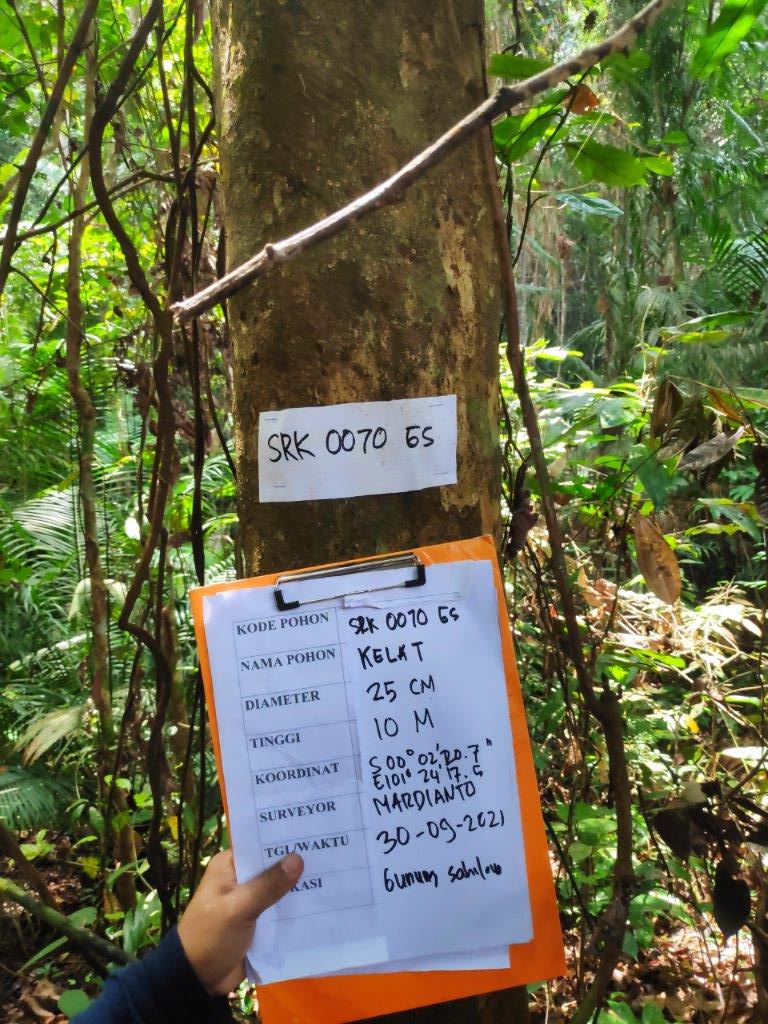 SRK 0070 GS
KODE POHON SRK 0070 GS
NAMA POHON KELAT
DIAMETER 25 CM
TINGGI 10 M
KOORDINAT S 00° 02' 20.7"
E 101° 24' 7.5
SURVEYOR MARDIANTO
TGL/WAKTU 30-09-2021
KASI Gunung